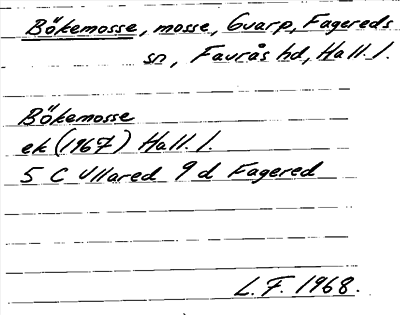 Bökemosse, mosse, Gvarp, Fagereds
sn, Faurås hd, Hall. l.
Bökemosse
ek (1967) Hall. l.
5 C Ullared 9 d Fagered
L. F. 1968.